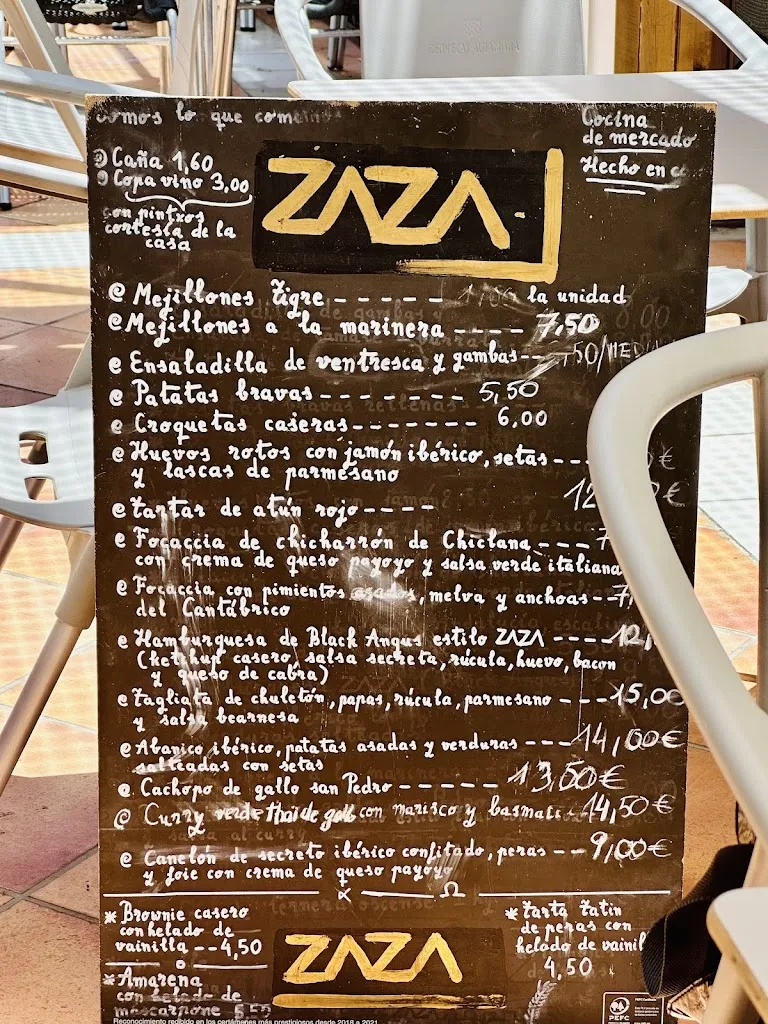 Somos lo que comemos
Cocina
de mercado
Hecho en
Caña 1,60
Copa vino 3,00
con pintxos
cortesía de la
casa
ZAZA
Mejillones tigre ----- la unidad
Mejillones a la marinera ---- 7,50
Ensaladilla de ventresca y gambas--
Patatas bravas ------- 5,50
Croquetas caseras------- 6,00
Huevos rotos con jamón ibérico, setas ---
y lascas de parmesano
tartar de atún rojo----
Focaccia de chicharrón de Chiclana ---
con crema de queso payoyo y salsa verde italiana
Focaccia con pimientos asados, melva y anchoas--
del Cantábrico
Hamburguesa de Black Angus estilo ZAZA ----
(ketchup casero, salsa secreta, rúcula, huevo, bacon
y queso de cabra)
tagliata de chuletón, papas, rúcula, parmesano ---15,00
y salsa bearnesa
Abanico ibérico, patatas asadas y verduras ---14,00€
salteadas con setas
Cachopo de gallo san Pedro ------ 13,50€
Curry verde thai de con marisco y basmati 14,50€
Canelón de secreto ibérico confitado, peras --9,00€
y foie con crema de queso payoyo
* Brownie casero
con helado de
vainilla --4,50
* Amarena
con helado de
mascarpone 5,50
ZAZA
* tarta tatin
de peras con
helado de
4,50
Reconocimiento recibido en los certámenes más prestigiosos desde 2018 a 2021
PEFC